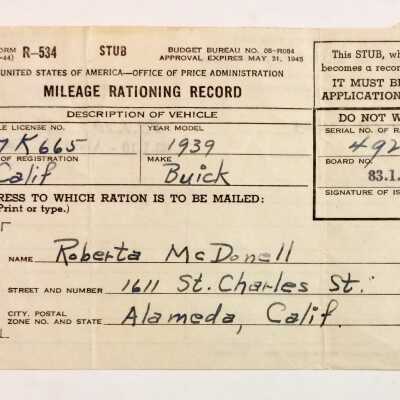 ORM R-534 STUB BUDGET BUREAU NO. 08-R084
-44) APPROVAL EXPIRES MAY 31, 1945
UNITED STATES OF AMERICA—OFFICE OF PRICE ADMINISTRATION
MILEAGE RATIONING RECORD
DESCRIPTION OF VEHICLE
LE LICENSE NO. YEAR MODEL
K665 1939
OF REGISTRATION MAKE
Calif Buick
RESS TO WHICH RATION IS TO BE MAILED:
Print or type.)
NAME Roberta McDonell
STREET AND NUMBER 1611 St. Charles St.
CITY, POSTAL
ZONE NO. AND STATE Alameda, Calif.
This STUB, wh
becomes a recor
IT MUST BE
APPLICATION
DO NOT W
SERIAL NO. OF RA
492
BOARD NO.
83.1.
SIGNATURE OF IS